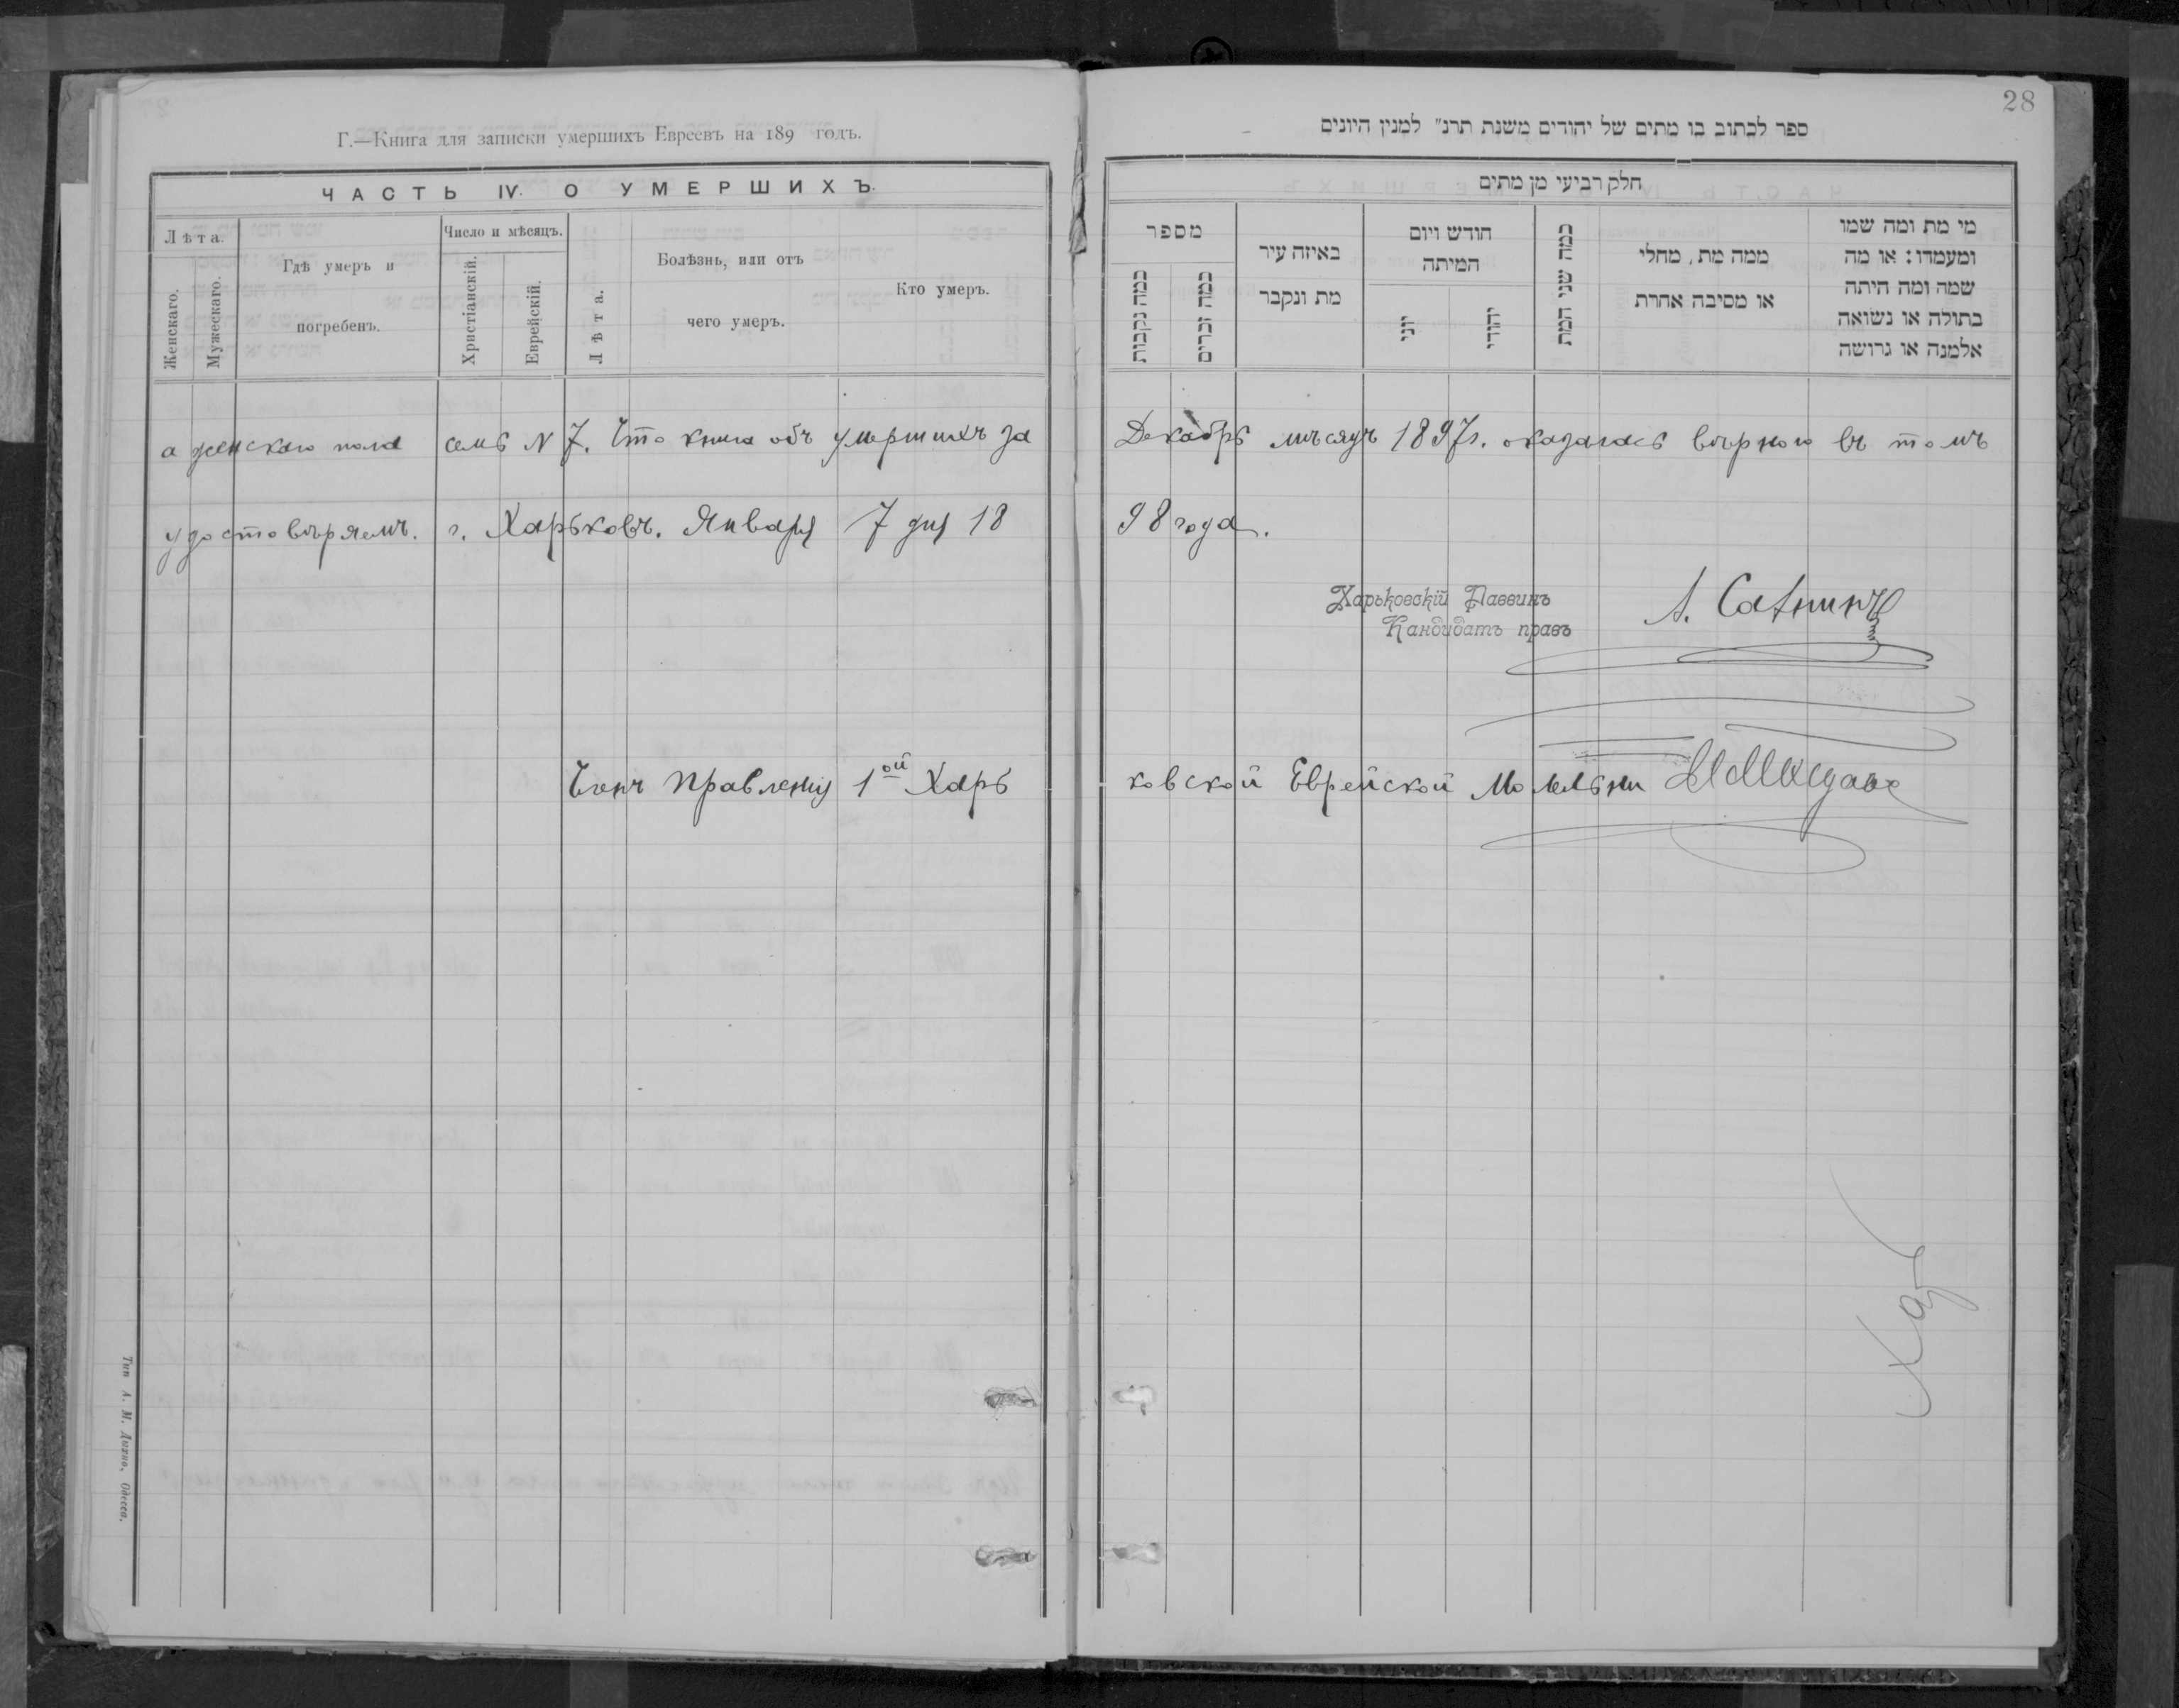 28
Г.—Книга для записки умершихъ Евреевъ на 189 годъ.
ЧАСТЬ IV. О УМЕРШИХЪ.
Лѣта.
Женскаго.
Мужескаго.
Гдѣ умеръ и
погребенъ.
Число и мѣсяцъ.
Христіанскій.
Еврейскій.
Лѣта.
Болѣзнь, или отъ
чего умеръ.
Кто умеръ.
ספר לכתוב בו מתים של יהודים משנת תרנ״ למנין היונים
חלק רביעי מן מתים
מספר
כמה נקבות
כמה זכרים
באיזה עיר
מת ונקבר
חודש ויום
המיתה
יוני
יהודי
כמה שני המת
ממה מת, מחלי
או מסיבה אחרת
מי מת ומה שמו
ומעמדו: או מה
שמה ומה היתה
בתולה או נשואה
אלמנה או גרושה
а женскаго пола семь N 7. Что книга объ умершихъ за Декабрь мѣсяцъ 1897г. оказалась вѣрною въ томъ
удостовѣряемъ. г. Харьковъ. Января 7 дня 1898 года.
Харьковскій Раввинъ
Кандидатъ правъ
Членъ Правленія 1ой Харьковской Еврейской Молельни
Хар
Тип А. М. Дыхно, Одесса.